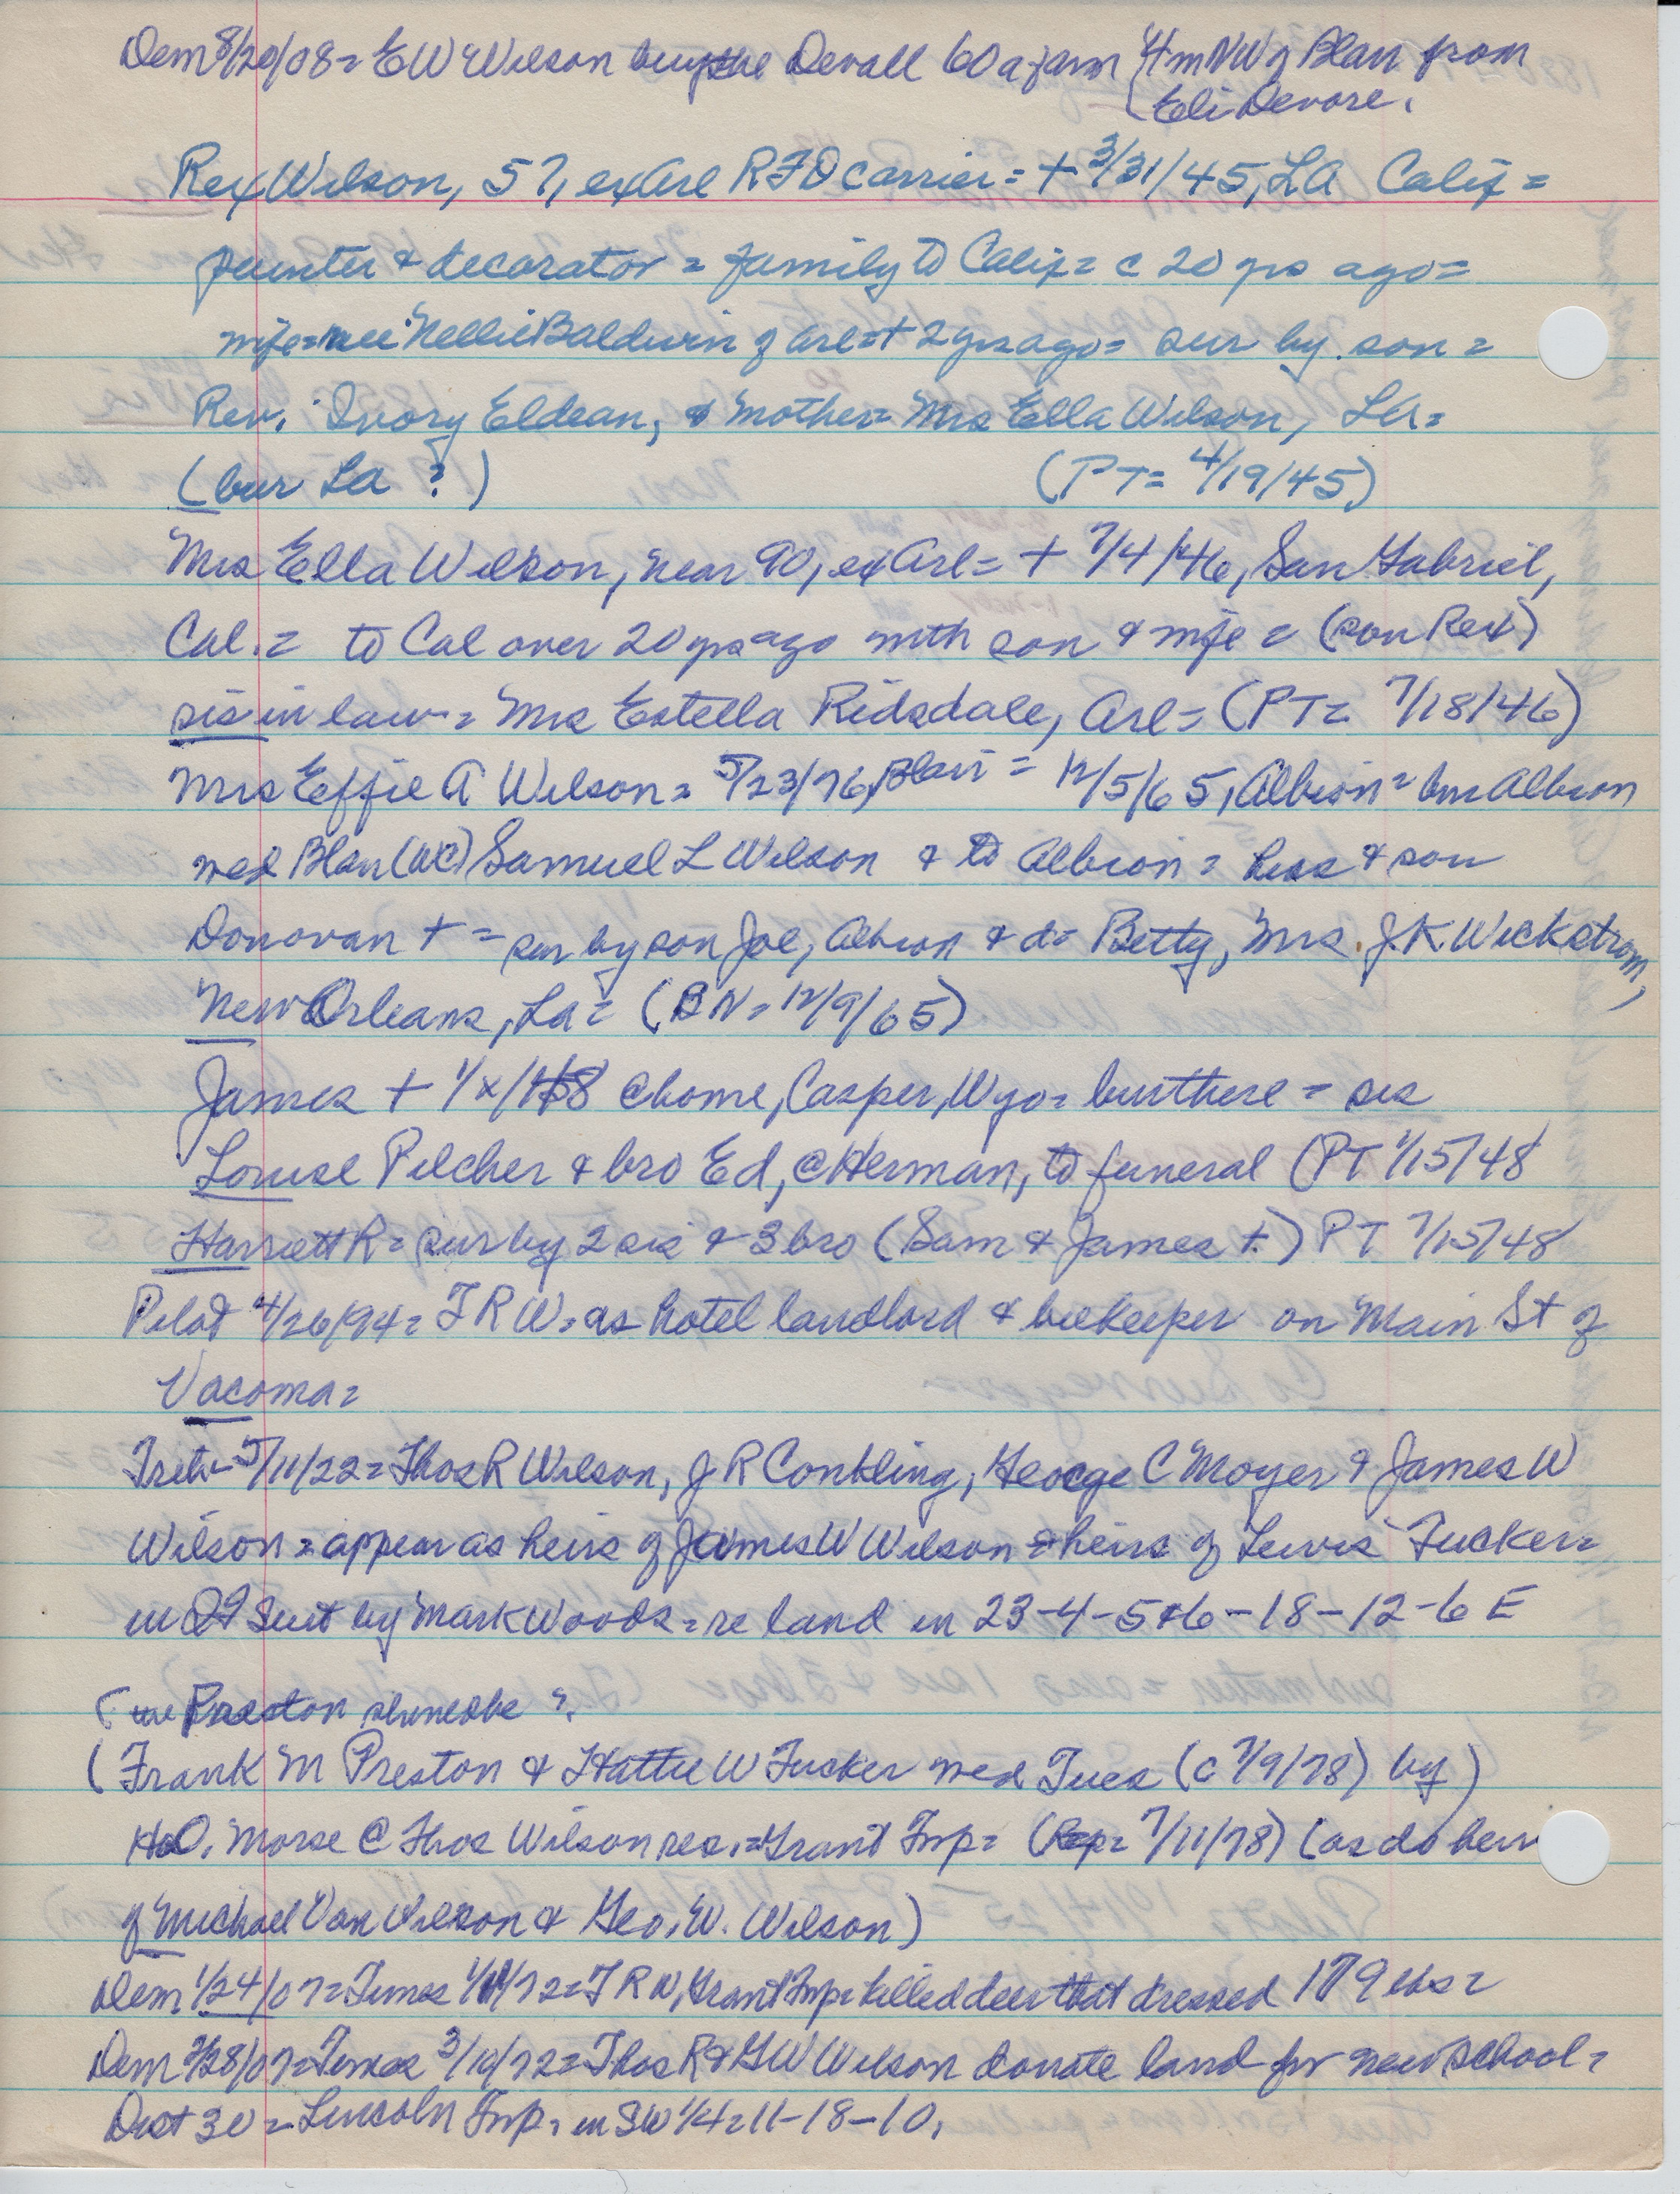 Dem 8/20/08 = E W Wilson buys the Devall 60 a farm 4 m NW of Blair from
Eli Devore.
Rex Wilson, 57, ex Arl RFD carrier = + 3/31/45, LA Calif =
painter & decorator = family to Calif = c 20 yrs ago =
wife = nee Nellie Baldwin of Arl = + 2 yrs ago = sur by son =
Rev. Ivory Eldean, & mother = Mrs Ella Wilson, LA =
(bur LA ?) (PT = 4/19/45)
Mrs Ella Wilson, near 90, ex Arl = + 7/4/46, San Gabriel,
Cal. = to Cal over 20 yrs ago with son & wife = (son Rex)
sis in law = Mrs Estella Ridsdale, Arl = (PT = 7/18/46)
Mrs Effie A Wilson = 5/23/76, Blair = 12/5/65, Albion = bur Albion
med Blair (WC) Samuel L Wilson & to Albion = hus & son
Donovan + = sur by son Joe, Albion & d = Betty, Mrs. J.K. Wickstrom,
New Orleans, La = (BN = 12/9/65)
James + 1/x/48 @ home, Casper, Wyo = bur there = sis
Louise Pilcher & bro Ed, @ Herman, to funeral (PT 1/15/48
Harriett R = sur by 2 sis & 3 bro (Sam & James +.) PT 7/15/48
Pilot 4/26/94 = T R W = as hotel landlord & beekeeper on Main St of
Vacoma =
Trib - 5/11/22 = Thos R Wilson, J R Conkling, George C Moyer & James W
Wilson = appear as heirs of James W Wilson & heirs of Lewis Tucker =
in QT Suit by Mark Woods = re land in 23-4-5&6-18-12-6 E
( Preston ?
(Frank M Preston & Hattie W Tucker med Tues (c 7/9/78) by)
H.O. Morse @ Thos Wilson res. = Grant Twp = (Rep = 7/11/78) (as do heirs
of Michael Van Wilson & Geo. W. Wilson)
Dem 1/24/07 = Times 1/ /72 = T R W, Grant Twp = killed deer that dressed 179 lbs =
Dem 2/28/07 = Times 3/10/72 = Thos R & G W Wilson donate land for new school =
Dist 30 = Lincoln Twp. in SW 1/4 = 11-18-10.